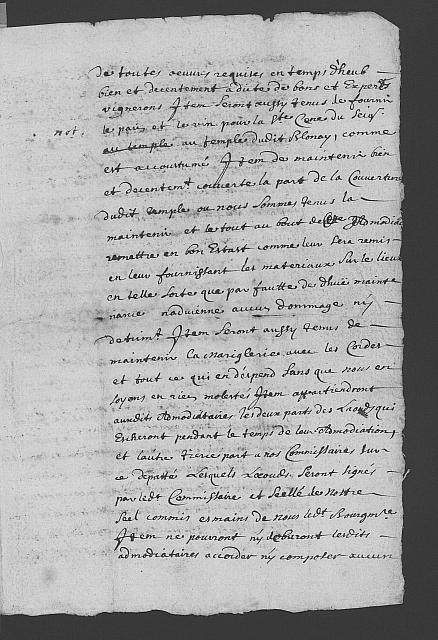 de toutes oeuvres requises en temps d'heub
bien et decentement a dicte de bons et Experts
vignerons Item seront aussy tenus de fournir
not. le pain et le vin pour la Ste Cene du Seigr
au temple au temple dudit Blonay, comme
est accoustumé Item de maintenir bien
et decentemt couverte la part de la Couverture
dudit temple ou nous sommes tenus la
maintenir et le tout au bout de Admodiaõn
remettre en bon Estat comme leur sera remis
en leur fournissant les materiaux sur le lieu
en telle sorte que par fautte de dhue mainte
nance n'advienne aucun dommage ny
detrimt. Item seront aussy tenus de
maintenir la Mariglerie avec les Cordes
et tout ce qui en despend sans que nous en
soyons en rien molestés Item appartiendront
auxdits Admodiataires les deux parts des Laouds qui
Escherront pendant le temps de leur Admodiation
et l'autre tierce part a nos Commissaires sur
ce deputtés Lesquels Laouds seront signés
par ledt Commissaire et seellé de nostre
seel commis es mains de nous ledt Bourgmre
Item ne pourront ny debvront lesdits
admodiataires accorder ny composer aucun